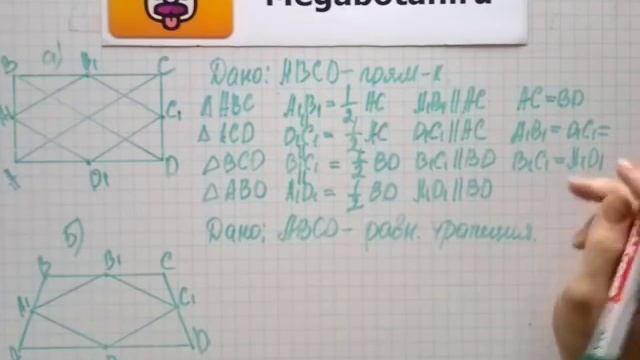 Megabotan.ru
а) B B₁ C
A₁ C₁
A D₁ D
Дано: ABCD - прям-к
△ ABC A₁B₁ = 1/2 AC A₁B₁ || AC AC = BD
△ ACD D₁C₁ = 1/2 AC D₁C₁ || AC A₁B₁ = D₁C₁ =
△ BCD B₁C₁ = 1/2 BD B₁C₁ || BD B₁C₁ = A₁D₁
△ ABD A₁D₁ = 1/2 BD A₁D₁ || BD
Дано: ABCD - равн. трапеция.
б)
B B₁ C
A₁ C₁
D